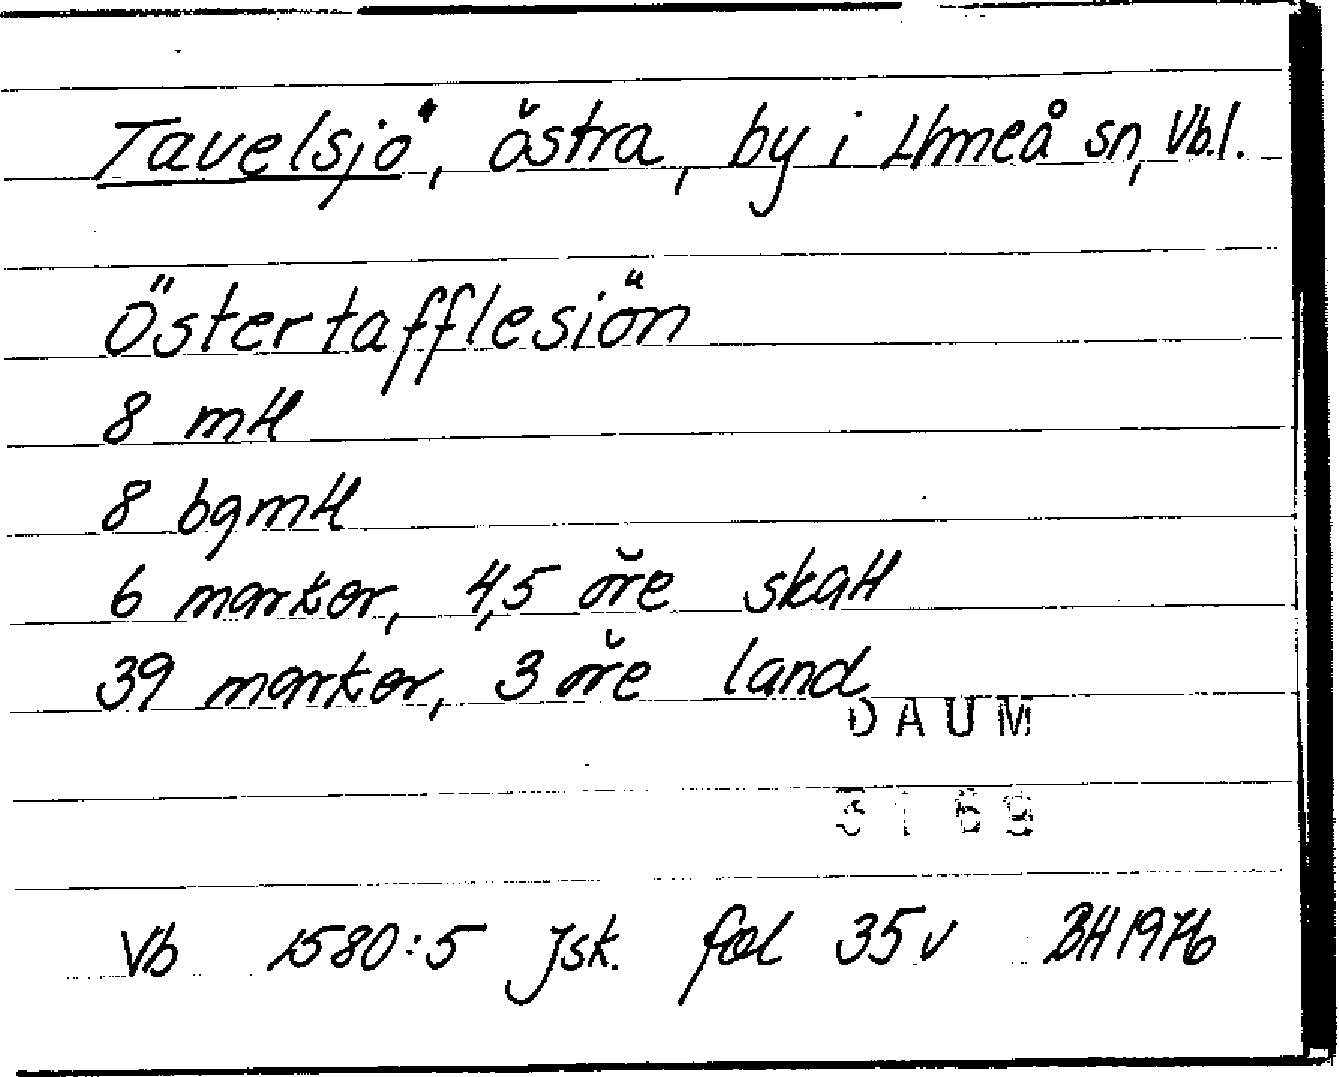 Tavelsjö, östra, by i Umeå sn, Vb.l.
Östertafflesiön
8 mtl
8 bgmtl
6 marker, 4,5 öre skatt
39 marker, 3 öre land
DAUM
3169
Vb 1580:5 Jsk. fol 35v BH 1976